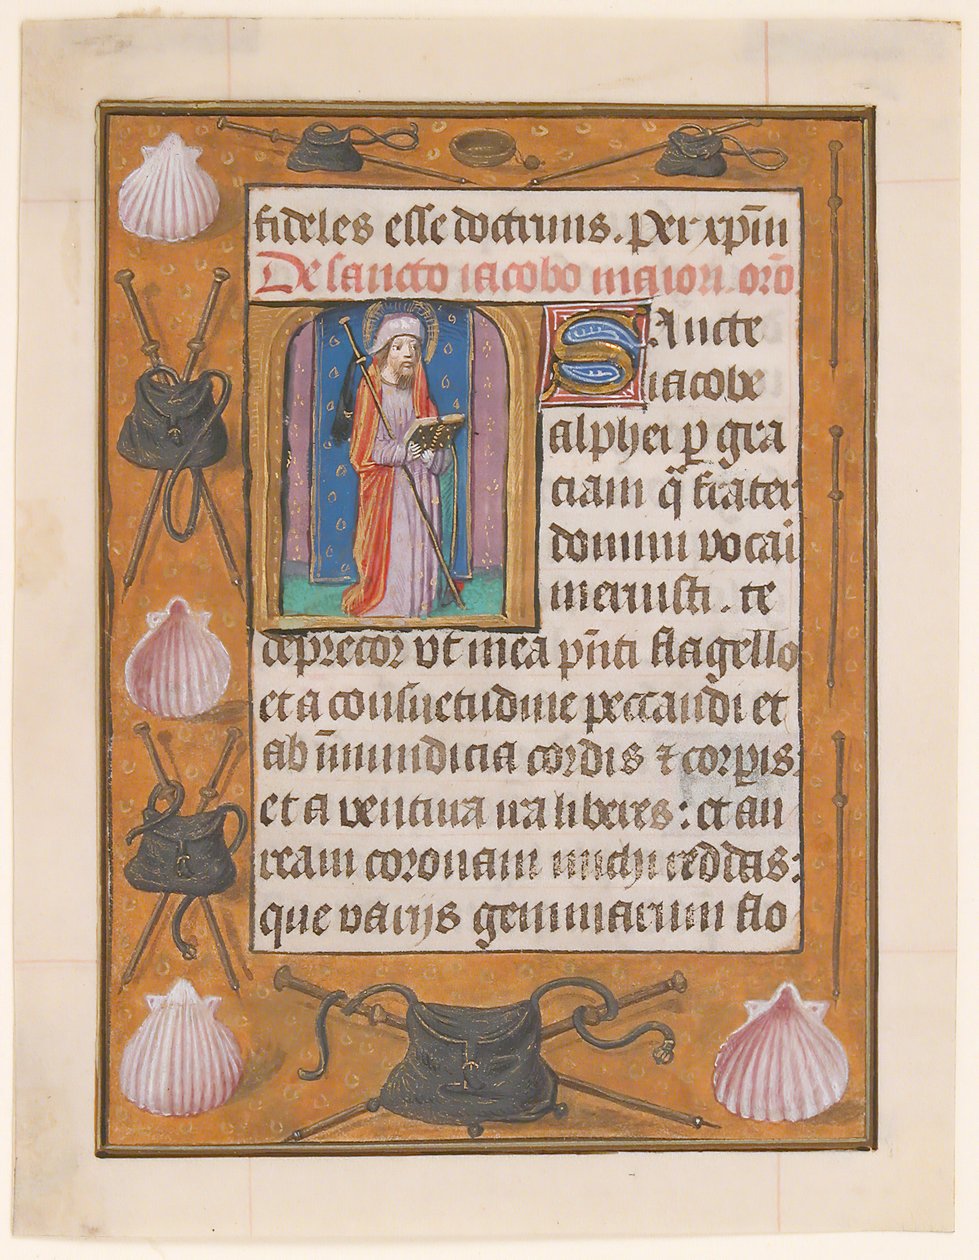 fideles esse doctrinis. Per xp̄m
De sancto iacobo maiori. orō
SAncte
iacobe
alphei ꝑ gra
ciam q̄ frater
domini vocari
meruisti. te
deprecor vt mea pn̄ti flagello
et a consuetudine peccandi et
ab īmundicia cordis ⁊ corꝑis:
et a ventura ira liberes: et au
ream coronam michi reddas:
que varijs gemmarum flo